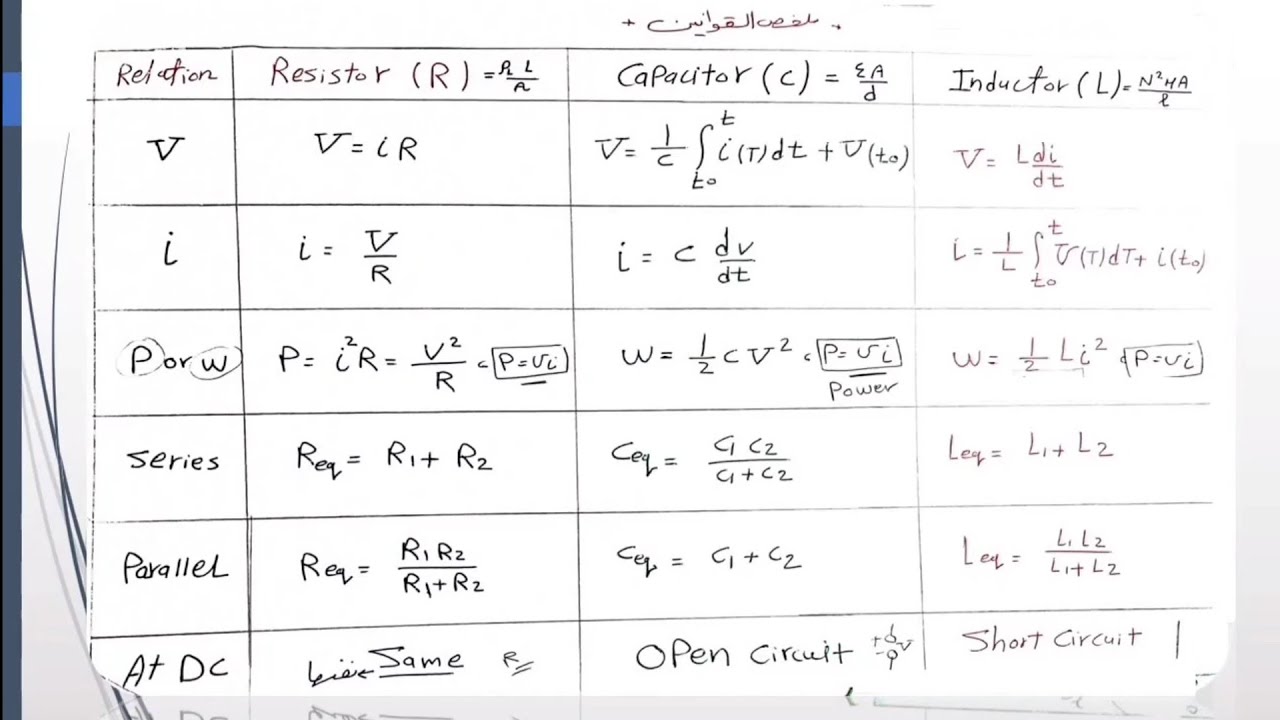 ملخص القوانين
Relation Resistor (R) = ρL/A Capacitor (C) = εA/d Inductor (L) = N²μA/ℓ
V V = iR V = 1/C ∫ₜₒᵗ i(T)dt + V(to) V = L di/dt
i i = V/R i = C dv/dt i = 1/L ∫ₜₒᵗ V(T)dT + i(to)
P or w P = i²R = V²/R P = vi w = 1/2 C V² P = vi w = 1/2 L i² P = vi
Power
Series Req = R1 + R2 Ceq = C1 C2/C1 + C2 Leq = L1 + L2
Parallel Req = R1 R2/R1 + R2 Ceq = C1 + C2 Leq = L1 L2/L1 + L2
At DC Same R Open Circuit + - V Short Circuit